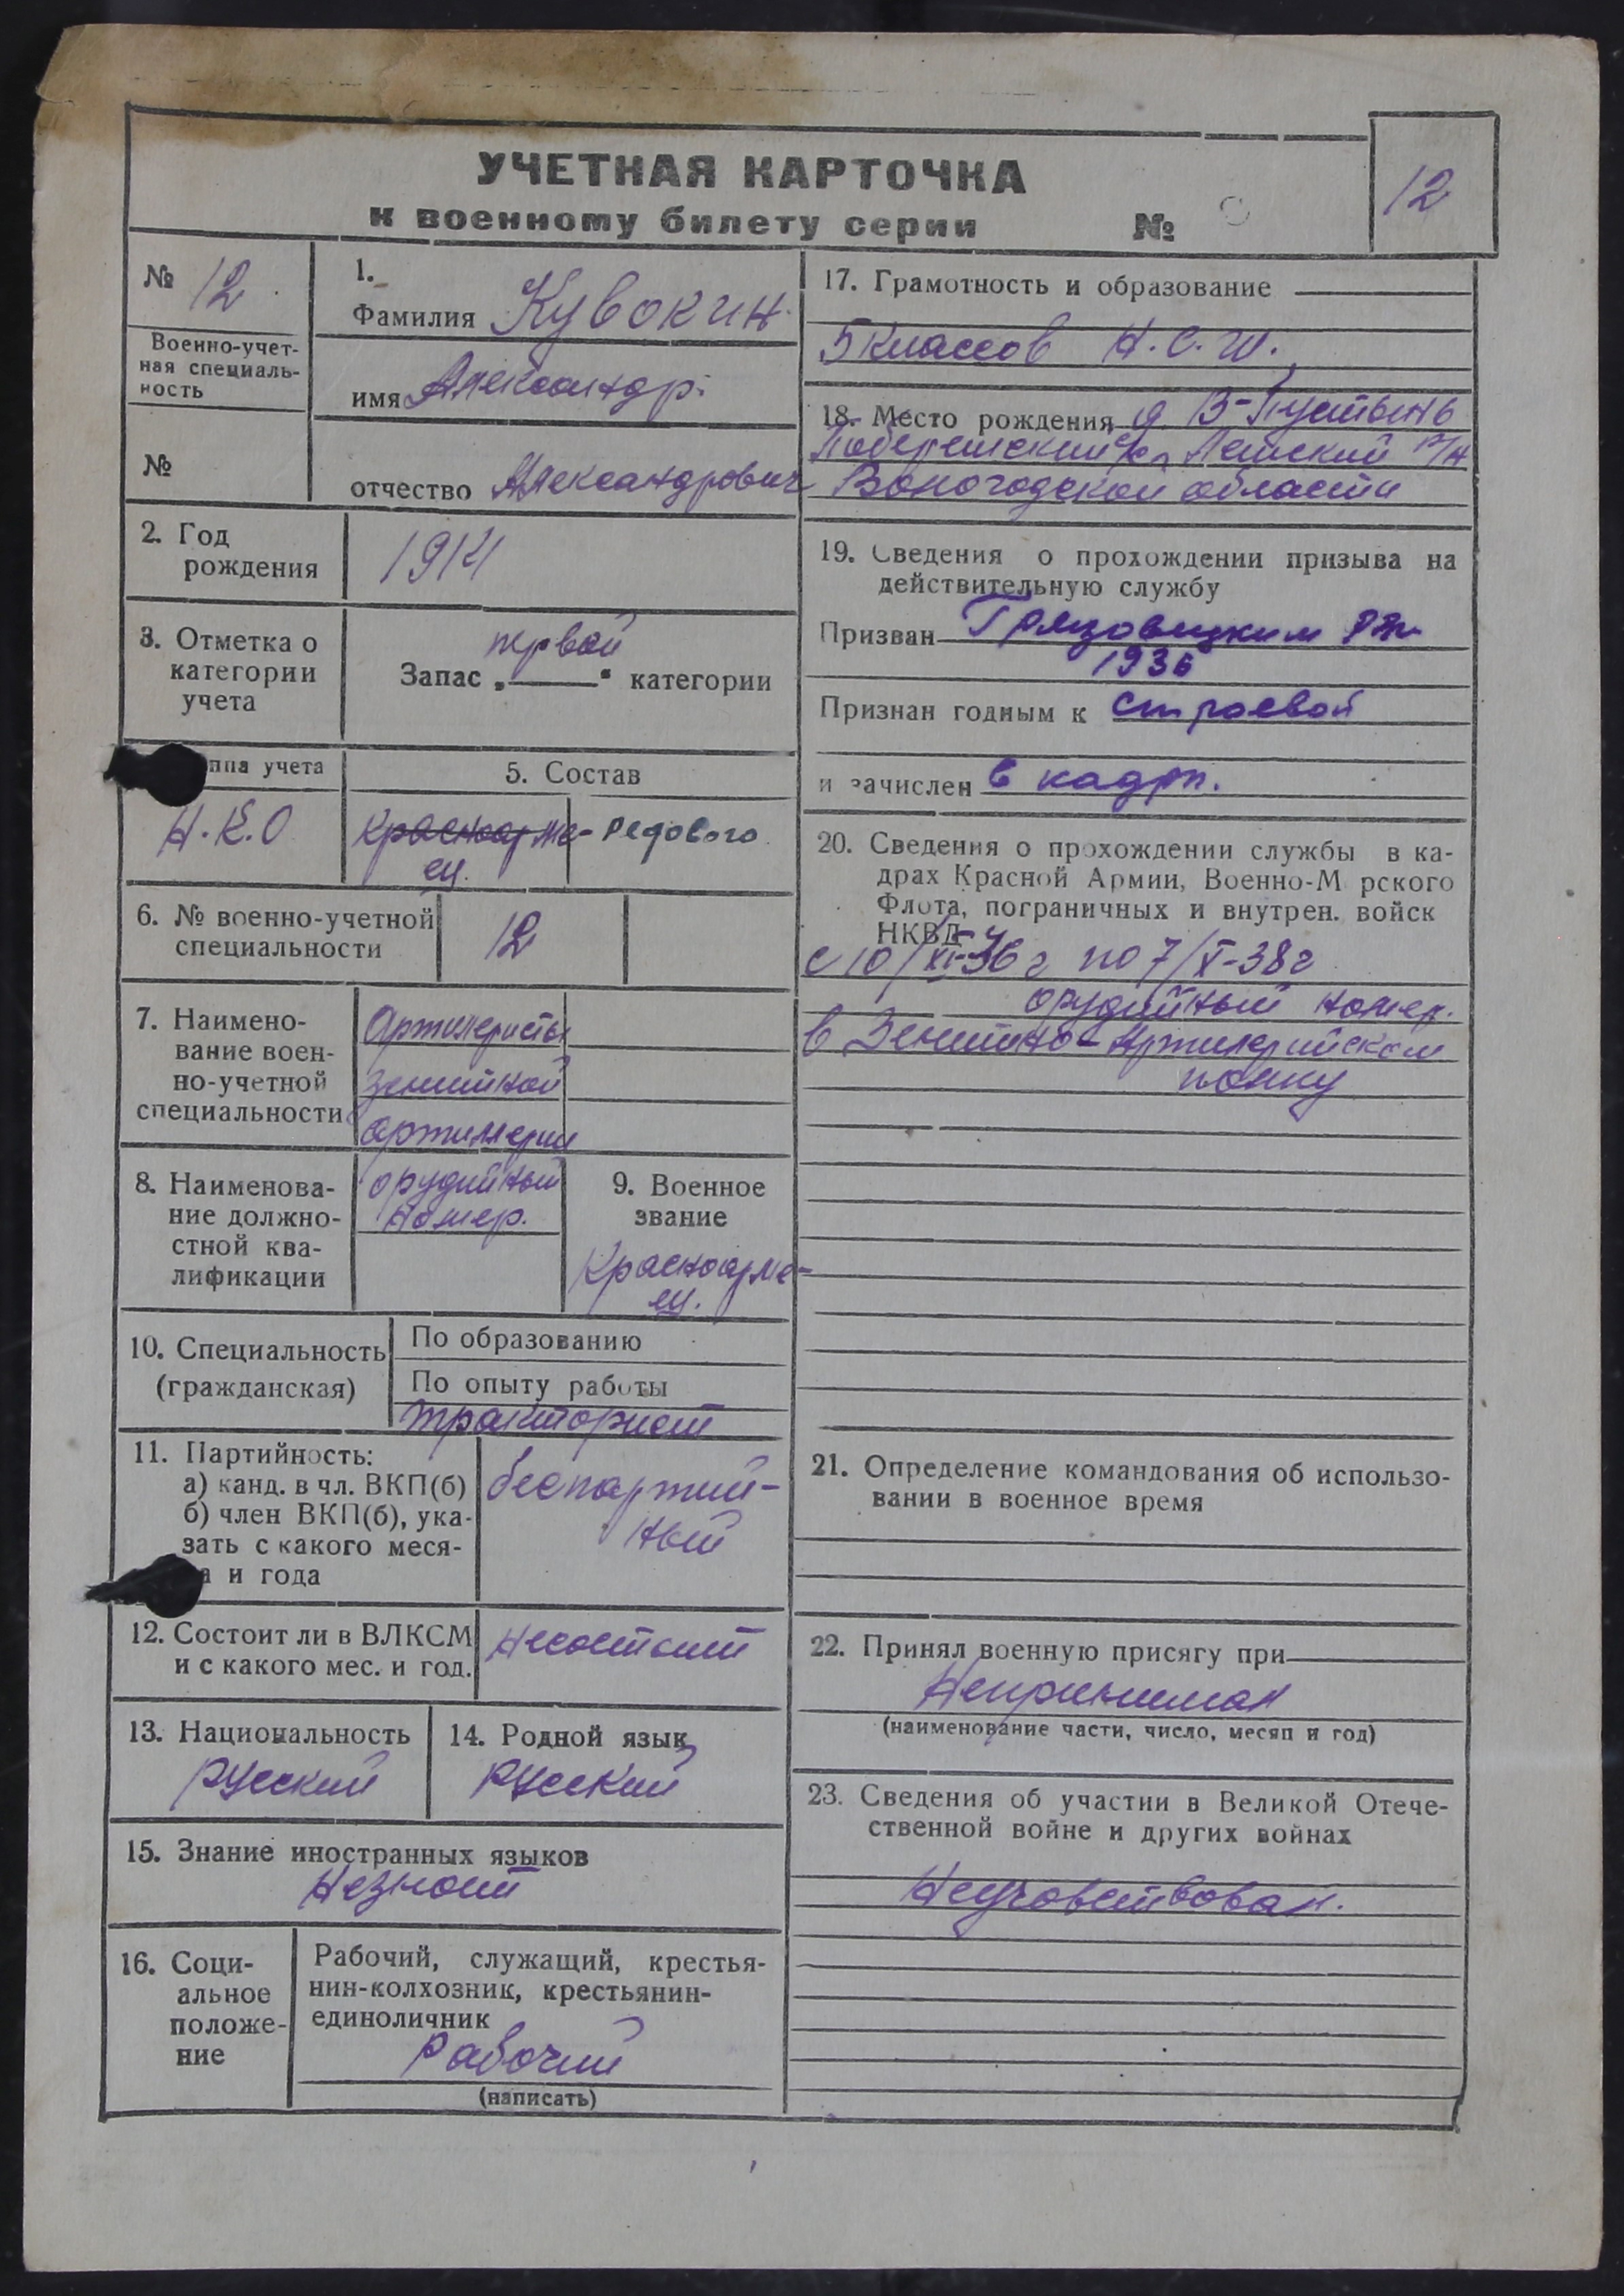 УЧЕТНАЯ КАРТОЧКА
к военному билету серии №
12
№ 12
Военно-учет-
ная специаль-
ность
№
1.
Фамилия Кувокин
имя Александр
отчество Александрович
2. Год
рождения
1914
3. Отметка о
категории
учета
первой
Запас „ “ категории
ппа учета
Н.К.О
5. Состав
Красноарме-
ец.
Редового
6. № военно-учетной
специальности
12
7. Наимено-
вание воен-
но-учетной
специальности
Артилеристы
зенитной
артиллерии
8. Наименова-
ние должно-
стной ква-
лификации
орудийный
номер.
9. Военное
звание
Красноарме-
ец.
10. Специальность
(гражданская)
По образованию
По опыту работы
тракторист
11. Партийность:
а) канд. в чл. ВКП(б)
б) член ВКП(б), ука-
зать с какого меся-
а и года
беспартий-
ный
12. Состоит ли в ВЛКСМ
и с какого мес. и год.
несостоит
13. Национальность
русский
14. Родной язык
русский
15. Знание иностранных языков
Незнает
16. Соци-
альное
положе-
ние
Рабочий, служащий, крестья-
нин-колхозник, крестьянин-
единоличник
рабочий
(написать)
17. Грамотность и образование
5 классов Н.С.Ш.
18. Место рождения д. В-Пустынь
с/с, р/н
Вологодской области
19. Сведения о прохождении призыва на
действительную службу
Призван Грязовецким
1936
Признан годным к строевой
и зачислен в кадры.
20. Сведения о прохождении службы в ка-
драх Красной Армии, Военно-М рского
Флота, пограничных и внутрен. войск
НКВД
с 10/XI-36 г по 7/X-38 г
орудийный номер.
в Зенитно-Артилерийском
полку
21. Определение командования об использо-
вании в военное время
22. Принял военную присягу при
Непринимал
(наименование части, число, месяц и год)
23. Сведения об участии в Великой Отече-
ственной войне и других войнах
Неучавствовал.